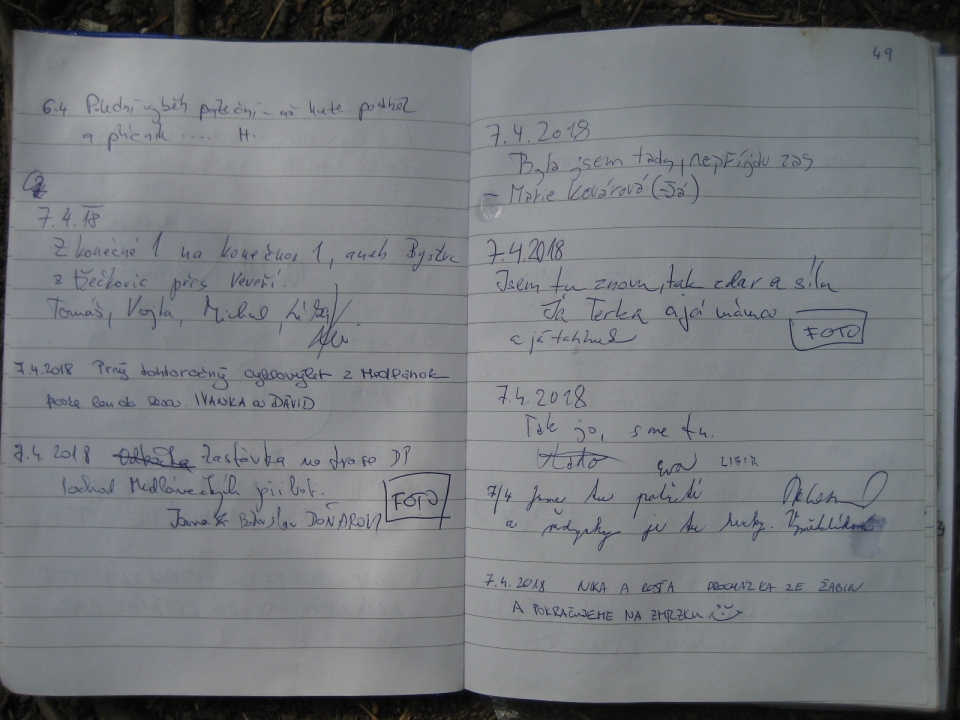 6.4 Polední výběh
a přícnik .... H.
7.4.18
Z konečné 1 na konečnou 1, aneb Bystrc
z Řečkovic přes Veveří.
Tomáš, Vojta, Michal,
7.4.2018 Prvý tohtoročný cyklovýlet z Medlánok
IVANKA a DÁVID
7.4.2018 Zastávka na trase DP
pochod Medláneckých
Jana & Bohuslav DOŇAROVI
FOTO
49
7.4.2018
Byla jsem tady, nepřijdu zas
– Marie Kovárová (Já)
7.4.2018
Jsem tu znovu, tak zdar a sílu
Já Terka a já máma
a já táhnul
FOTO
7.4.2018
Tak jo, sme tu.
Eva LIBOR
7/4 Jsme tu poprvé
a vždycky je tu hezky.
7.4.2018 NIKA A ROSŤA PROCHÁZKA ZE ŽABIN
A POKRAČUJEME NA ZMRZKU